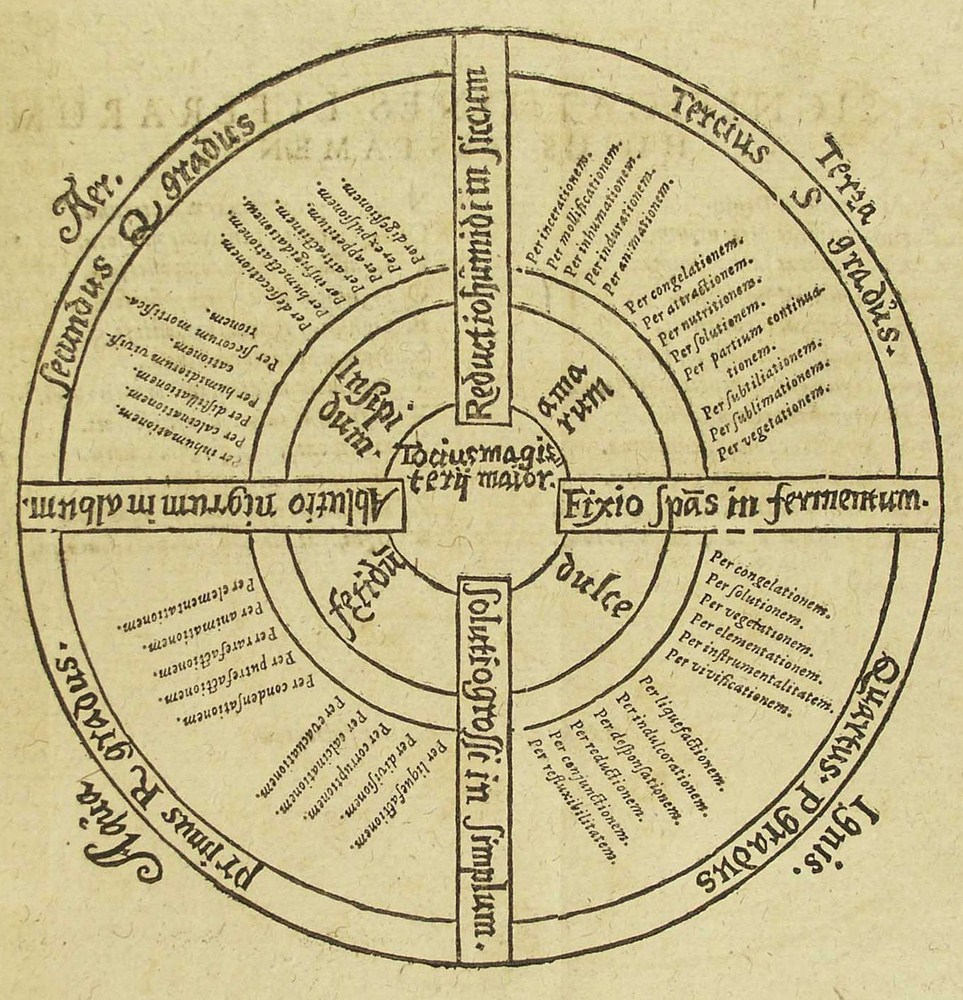 Aer.
secundus Q gradus
Tercius S
Tersa
gradus.
Reductio humidi in siccum
Per inhumationem.
Per calcinationem.
Per distillationem.
Per humidiorum vivifi-
cationem.
Per siccorum mortifica-
tionem.
Per desiccationem.
Per humectationem.
Per infrigidationem.
Per attractionem.
Per appetitum.
Per expulsionem.
Per digestionem.
Per incerationem.
Per mollificationem.
Per inhumationem.
Per indurationem.
Per animationem.
Per congelationem.
Per attractionem.
Per nutritionem.
Per solutionem.
Per partium continua-
tionem.
Per subtiliationem.
Per sublimationem.
Per vegetationem.
Insipi.
dum.
ama
rum
Tocius magis
terij maior.
Ablutio nigrum in album.
Fixio spãs in fermentum.
fetidũ
dulce
Solutio grossi in simplum.
Per elementationem.
Per animationem.
Per rarefactionem.
Per putrefactionem.
Per condensationem.
Per evacuationem.
Per calcinationem.
Per corruptionem.
Per divisionem.
Per liquefactionem.
Per congelationem.
Per solutionem.
Per vegetationem.
Per elementationem.
Per instrumentalitatem.
Per vivificationem.
Per liquefactionem.
Per indulcorationem.
Per desponsationem.
Per reductionem.
Per conjunctionem.
Per refluxibilitatem.
Aqua
primus R gradus.
Quartus. P gradus
Ignis.